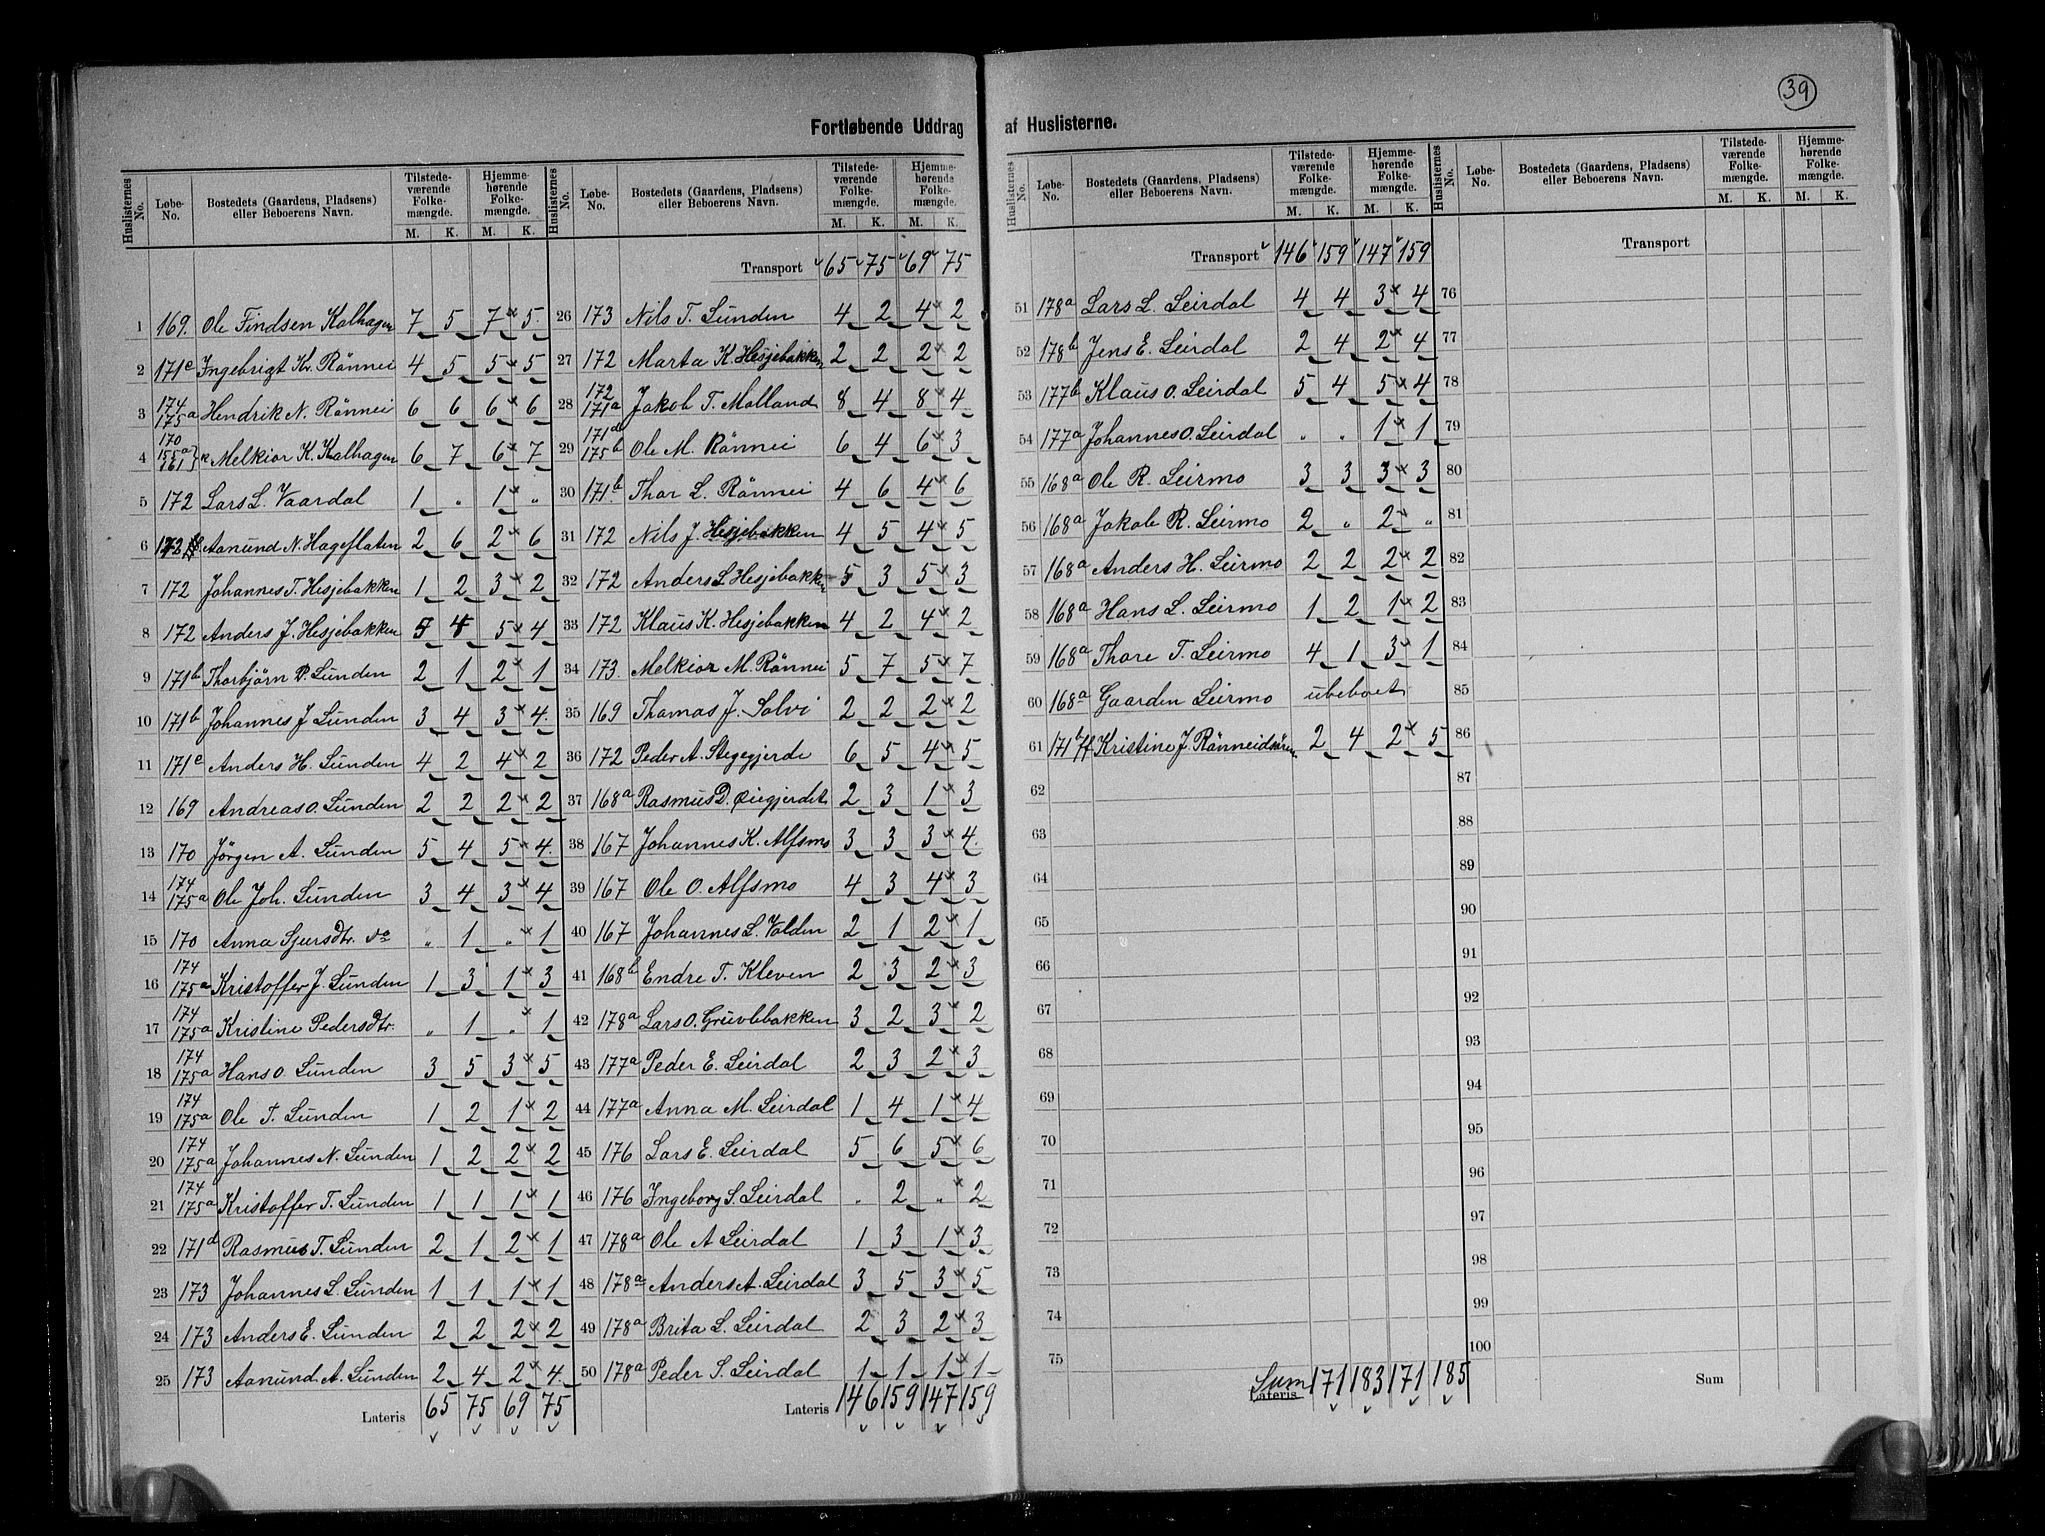 39
Fortløbende Uddrag af Huslisterne.
Huslisternes No. | Løbe-No. | Bostedets (Gaardens, Pladsens) eller Beboerens Navn. | Tilstedeværende Folkemængde. M. K. | Hjemmehørende Folkemængde. M. K.
1 169. Ole Findsen Kalhagen 7 5 7 × 5
2 171c Ingebrigt Kr. Rönnei 4 5 5 × 5
3 174 175a Hendrik N. Rönnei 6 6 6 × 6
4 170 155a 161 Melkior K. Kalhagen 6 7 6 × 7
5 172 Lars L. Vaardal 1 „ 1 × „
6 172 Aamund N. Hageflaten 2 6 2 × 6
7 172 Johannes T. Hesjebakken 1 2 3 × 2
8 172 Anders J. Hesjebakken 5 4 5 × 4
9 171b Thorbjörn P. Sunden 2 1 2 × 1
10 171b Johannes J. Sunden 3 4 3 × 4.
11 171e Anders H. Sunden 4 2 4 × 2
12 169 Andreas O. Sunden 2 2 2 × 2
13 170 Jörgen A. Sunden 5 4 5 × 4.
14 174 175a Ole Joh. Sunden 3 4 3 × 4
15 170 Anna Sjursdtr. do „ 1 „ × 1
16 174 175a Kristoffer J. Sunden 1 3 1 × 3
17 174 175a Kristine Pedersdtr. „ 1 „ × 1
18 174 175a Hans O. Sunden 3 5 3 × 5
19 174 175a Ole T. Sunden 1 2 1 × 2
20 174 175a Johannes N. Sunden 1 2 2 × 2
21 174 175a Kristoffer T. Sunden 1 1 1 × 1
22 171d Rasmus T. Sunden 2 1 2 × 1
23 173 Johannes L. Sunden 1 1 1 × 1
24 173 Anders E. Sunden 2 2 2 × 2
25 173 Aamund A. Sunden 2 4 2 × 4.
Lateris 65 75 69 75
Huslisternes No. | Løbe-No. | Bostedets (Gaardens, Pladsens) eller Beboerens Navn. | Tilstedeværende Folkemængde. M. K. | Hjemmehørende Folkemængde. M. K.
Transport 65 75 69 75
26 173 Nils T. Sunden 4 2 4 × 2
27 172 Marta K. Hesjebakken 2 2 2 × 2
28 172 171a Jakob T. Molland 8 4 8 × 4
29 171d 175b Ole M. Rönnei 6 4 6 × 3
30 171b Thor L. Rönnei 4 6 4 × 6
31 172 Nils J. Hesjebakken 4 5 4 × 5
32 172 Anders L. Hesjebakken 5 3 5 × 3
33 172 Klaus K. Hesjebakken 4 2 4 × 2
34 173. Melkior M. Rönnei 5 7 5 × 7
35 169 Thomas J. Solvi 2 2 2 × 2
36 172 Peder A. Stegegjerde 6 5 4 × 5
37 168a Rasmus D. Öiegjerdet 2 3 1 × 3
38 167 Johannes K. Alfsmo 3 3 3 × 4.
39 167 Ole O. Alfsmo 4 3 4 × 3
40 167 Johannes L. Volden 2 1 2 × 1
41 168b Endre T. Kleven 2 3 2 × 3
42 178a Lars O. Gruvlebakken 3 2 3 × 2
43 177a Peder E. Leirdal 2 3 2 × 3
44 177a Anna M. Leirdal 1 4 1 × 4
45 176 Lars E. Leirdal 5 6 5 × 6
46 176 Ingeborg S. Leirdal „ 2 „ × 2
47 178a Ole A Leirdal 1 3 1 × 3
48 178a Anders A. Leirdal 3 5 3 × 5
49 178a Brita L. Leirdal 2 3 2 × 3
50 178a Peder S. Leirdal 1 1 1 × 1
Lateris 146 159 147 159
Huslisternes No. | Løbe-No. | Bostedets (Gaardens, Pladsens) eller Beboerens Navn. | Tilstedeværende Folkemængde. M. K. | Hjemmehørende Folkemængde. M. K.
Transport 146 159 147 159
51 178a Lars L. Leirdal 4 4 3 × 4
52 178b Jens E. Leirdal 2 4 2 × 4
53 177b Klaus O. Leirdal 5 4 5 × 4
54 177a Johannes O. Leirdal „ „ 1 × 1
55 168a Ole R. Leirmo 3 3 3 × 3
56 168a Jakob R. Leirmo 2 „ 2 × „
57 168a Anders H. Leirmo 2 2 2 × 2
58 168a Hans L. Leirmo 1 2 1 × 2
59 168a Thore T. Leirmo 4 1 3 × 1
60 168a Gaarden Leirmo ubeboet
61 171b ff. Kristine J. Rönneidsören 2 4 2 × 5
62
63
64
65
66
67
68
69
70
71
72
73
74
75
Sum Lateris 171 183 171 185
Huslisternes No. | Løbe-No. | Bostedets (Gaardens, Pladsens) eller Beboerens Navn. | Tilstedeværende Folkemængde. M. K. | Hjemmehørende Folkemængde. M. K.
Transport
76
77
78
79
80
81
82
83
84
85
86
87
88
89
90
91
92
93
94
95
96
97
98
99
100
Sum